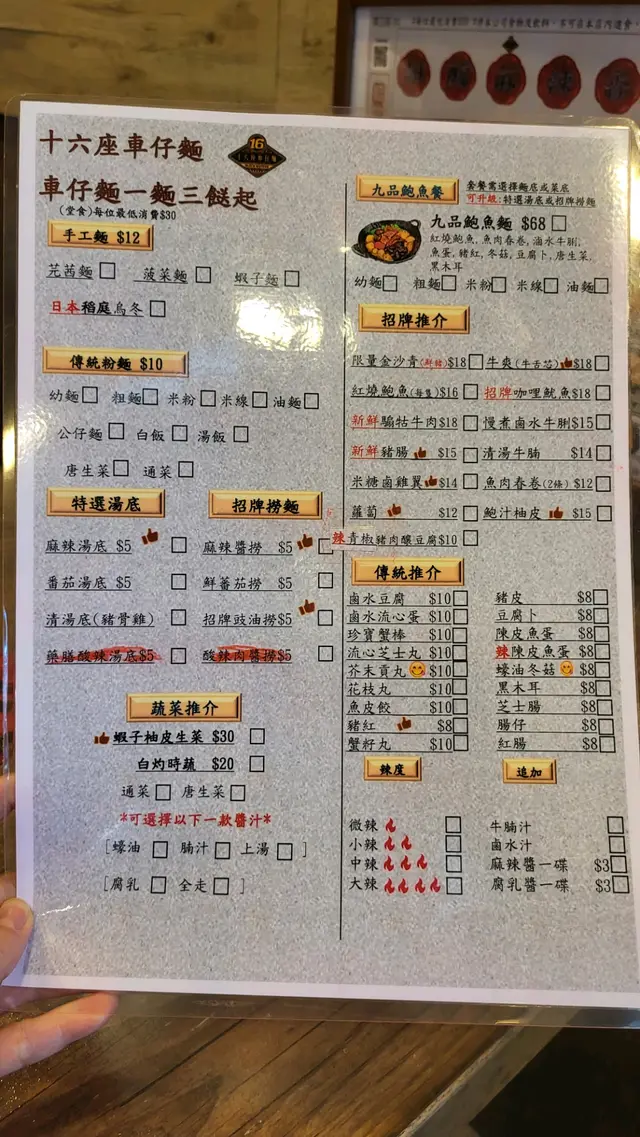 十六座車仔麵
16
車仔麵一麵三餸起
(堂食)每位最低消費$30
手工麵 $12
芫茜麵 菠菜麵 蝦子麵
日本稻庭烏冬
傳統粉麵 $10
幼麵 粗麵 米粉 米線 油麵
公仔麵 白飯 湯飯
唐生菜 通菜
特選湯底
麻辣湯底 $5
番茄湯底 $5
清湯底(豬骨雞)
藥膳酸辣湯底$5
招牌撈麵
麻辣醬撈 $5
鮮蕃茄撈 $5
招牌豉油撈$5
酸辣肉醬撈$5
蔬菜推介
蝦子柚皮生菜 $30
白灼時蔬 $20
通菜 唐生菜
*可選擇以下一款醬汁*
[蠔油 腩汁 上湯 ]
[腐乳 全走 ]
九品鮑魚餐
套餐需選擇麵底或菜底
可升級:特選湯底或招牌撈麵
九品鮑魚麵 $68
紅燒鮑魚,魚肉春卷,滷水牛脷,
魚蛋,豬紅,冬菇,豆腐卜,唐生菜,
黑木耳
幼麵 粗麵 米粉 米線 油麵
招牌推介
限量金沙青(鮮豬)$18 牛爽(牛舌芯) $18
紅燒鮑魚(每隻)$16 招牌咖哩魷魚$18
新鮮騸牯牛肉$18 慢煮鹵水牛脷$15
新鮮豬腸 $15 清湯牛腩 $14
米糖鹵雞翼 $14 魚肉春卷(2條) $12
蘿蔔 $12 鮑汁柚皮 $15
辣青椒豬肉釀豆腐$10
傳統推介
鹵水豆腐 $10 豬皮 $8
鹵水流心蛋 $10 豆腐卜 $8
珍寶蟹棒 $10 陳皮魚蛋 $8
流心芝士丸 $10 辣陳皮魚蛋 $8
芥末貢丸 $10 蠔油冬菇 $8
花枝丸 $10 黑木耳 $8
魚皮餃 $10 芝士腸 $8
豬紅 $8 腸仔 $8
蟹籽丸 $10 紅腸 $8
辣度
微辣
小辣
中辣
大辣
追加
牛腩汁
鹵水汁
麻辣醬一碟 $3
腐乳醬一碟 $3